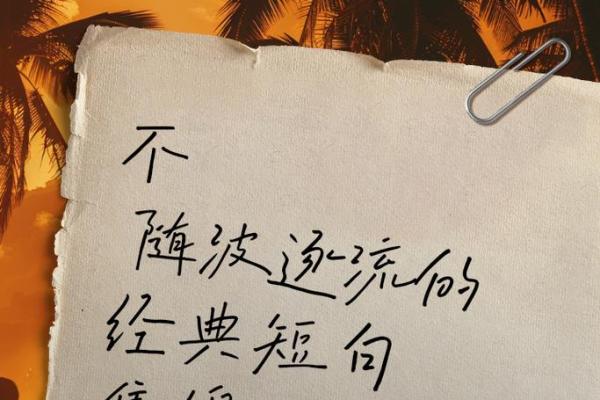 不
随波逐流的
经典短句